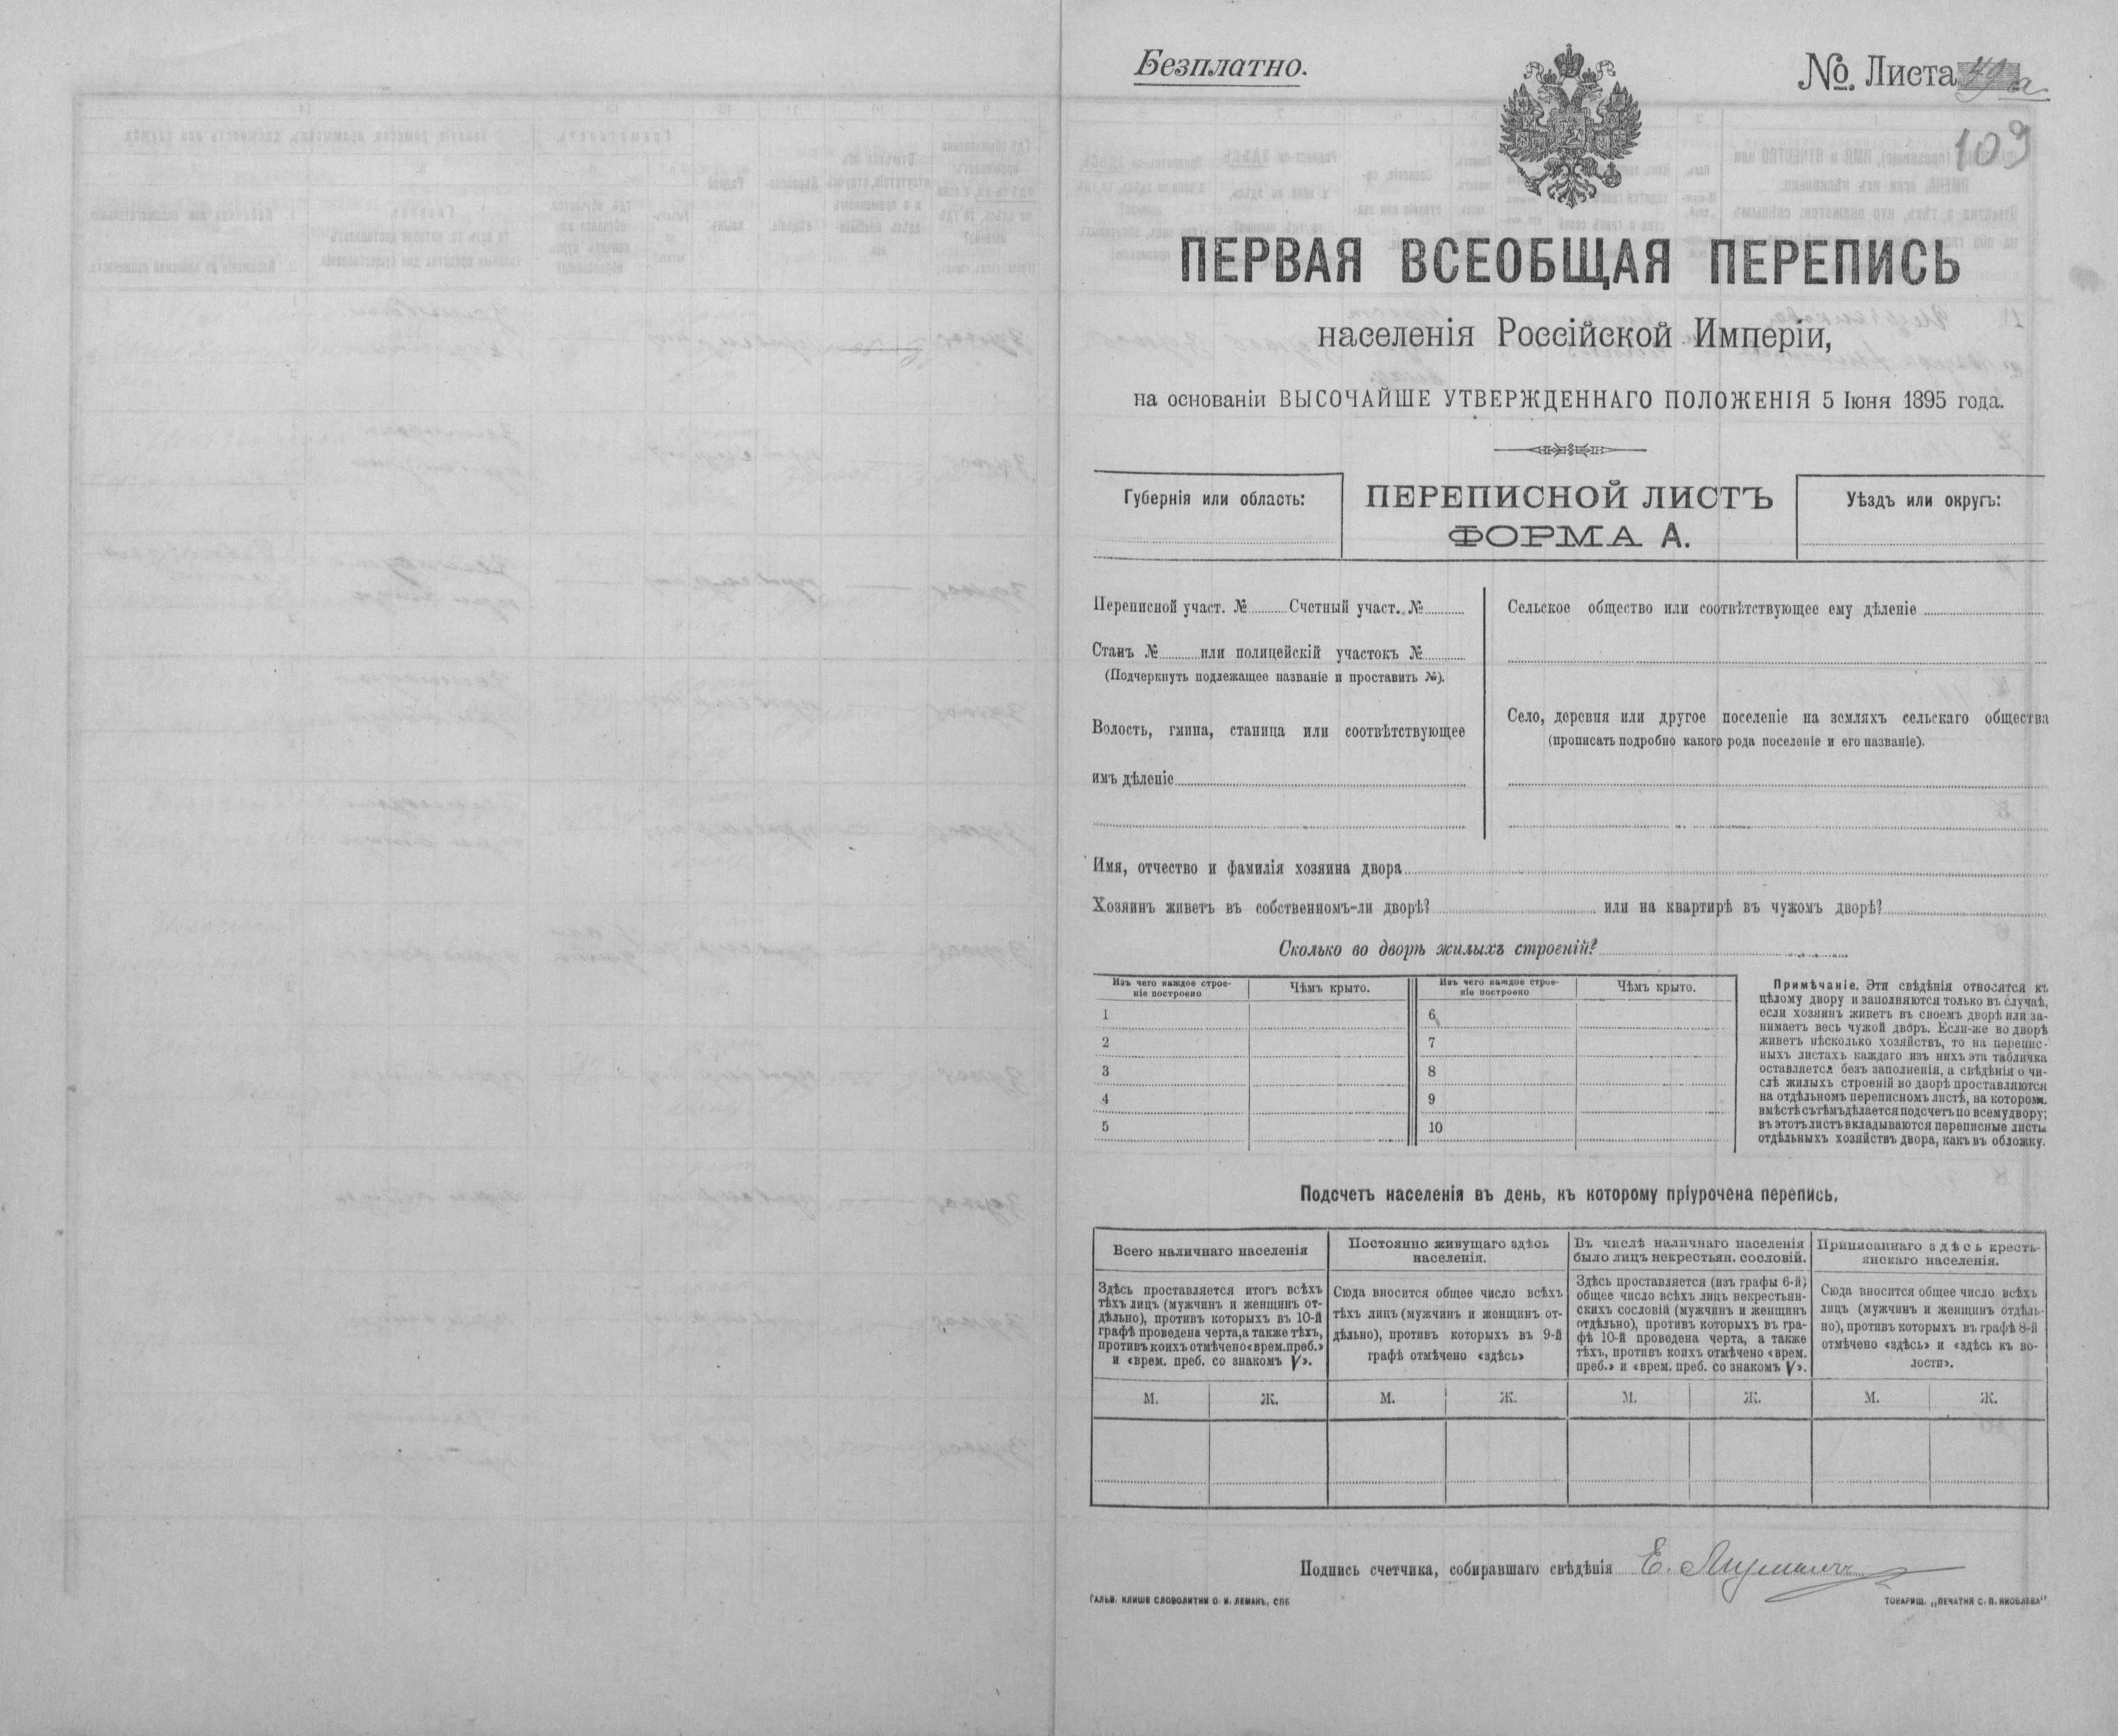 Безплатно.
№. Листа 49 а
109
ПЕРВАЯ ВСЕОБЩАЯ ПЕРЕПИСЬ
населенія Россійской Имперіи,
на основаніи ВЫСОЧАЙШЕ УТВЕРЖДЕННАГО ПОЛОЖЕНІЯ 5 Іюня 1895 года.
Губернія или область:
ПЕРЕПИСНОЙ ЛИСТЪ
ФОРМА А.
Уѣздъ или округъ:
Переписной участ. № Счетный участ. №
Станъ № или полицейскій участокъ №
(Подчеркнуть подлежащее названіе и проставить №).
Волость, гмина, станица или соотвѣтствующее
имъ дѣленіе
Сельское общество или соотвѣтствующее ему дѣленіе
Село, деревня или другое поселеніе на земляхъ сельскаго общества
(прописать подробно какого рода поселеніе и его названіе).
Имя, отчество и фамилія хозяина двора
Хозяинъ живетъ въ собственномъ-ли дворѣ? или на квартирѣ въ чужомъ дворѣ?
Сколько во дворѣ жилыхъ строеній?
Изъ чего каждое строе-
ніе построено
Чѣмъ крыто.
Изъ чего каждое строе-
ніе построено
Чѣмъ крыто.
1 6
2 7
3 8
4 9
5 10
Примѣчаніе. Эти свѣдѣнія относятся къ
цѣлому двору и заполняются только въ случаѣ,
если хозяинъ живетъ въ своемъ дворѣ или за-
нимаетъ весь чужой дворъ. Если-же во дворѣ
живетъ нѣсколько хозяйствъ, то на перепис-
ныхъ листахъ каждаго изъ нихъ эта табличка
оставляется безъ заполненія, а свѣдѣнія о чи-
слѣ жилыхъ строеній во дворѣ проставляются
на отдѣльномъ переписномъ листѣ, на которомъ
вмѣстѣ съ тѣмъ дѣлается подсчетъ по всему двору;
въ этотъ листъ вкладываются переписные листы
отдѣльныхъ хозяйствъ двора, какъ въ обложку.
Подсчетъ населенія въ день, къ которому пріурочена перепись.
Всего наличнаго населенія
Здѣсь проставляется итогъ всѣхъ
тѣхъ лицъ (мужчинъ и женщинъ от-
дѣльно), противъ которыхъ въ 10-й
графѣ проведена черта, а также тѣхъ,
противъ коихъ отмѣчено «врем. преб.»
и «врем. преб. со знакомъ V».
Постоянно живущаго здѣсь
населенія.
Сюда вносится общее число всѣхъ
тѣхъ лицъ (мужчинъ и женщинъ от-
дѣльно), противъ которыхъ въ 9-й
графѣ отмѣчено «здѣсь»
Въ числѣ наличнаго населенія
было лицъ некрестьян. сословій.
Здѣсь проставляется (изъ графы 6-й)
общее число всѣхъ лицъ некрестьян-
скихъ сословій (мужчинъ и женщинъ
отдѣльно), противъ которыхъ въ гра-
фѣ 10-й проведена черта, а также
тѣхъ, противъ коихъ отмѣчено «врем.
преб.» и «врем. преб. со знакомъ V».
Приписаннаго здѣсь кресть-
янскаго населенія.
Сюда вносится общее число всѣхъ
лицъ (мужчинъ и женщинъ отдѣль-
но), противъ которыхъ въ графѣ 8-й
отмѣчено «здѣсь» и «здѣсь къ во-
лости».
М. Ж. М. Ж. М. Ж. М. Ж.
Подпись счетчика, собиравшаго свѣдѣнія Е.
ГАЛЬВ. КЛИШЕ СЛОВОЛИТНИ О. И. ЛЕМАНЪ, СПБ
ТОВАРИЩ. „ПЕЧАТНЯ С. П. ЯКОВЛЕВА"